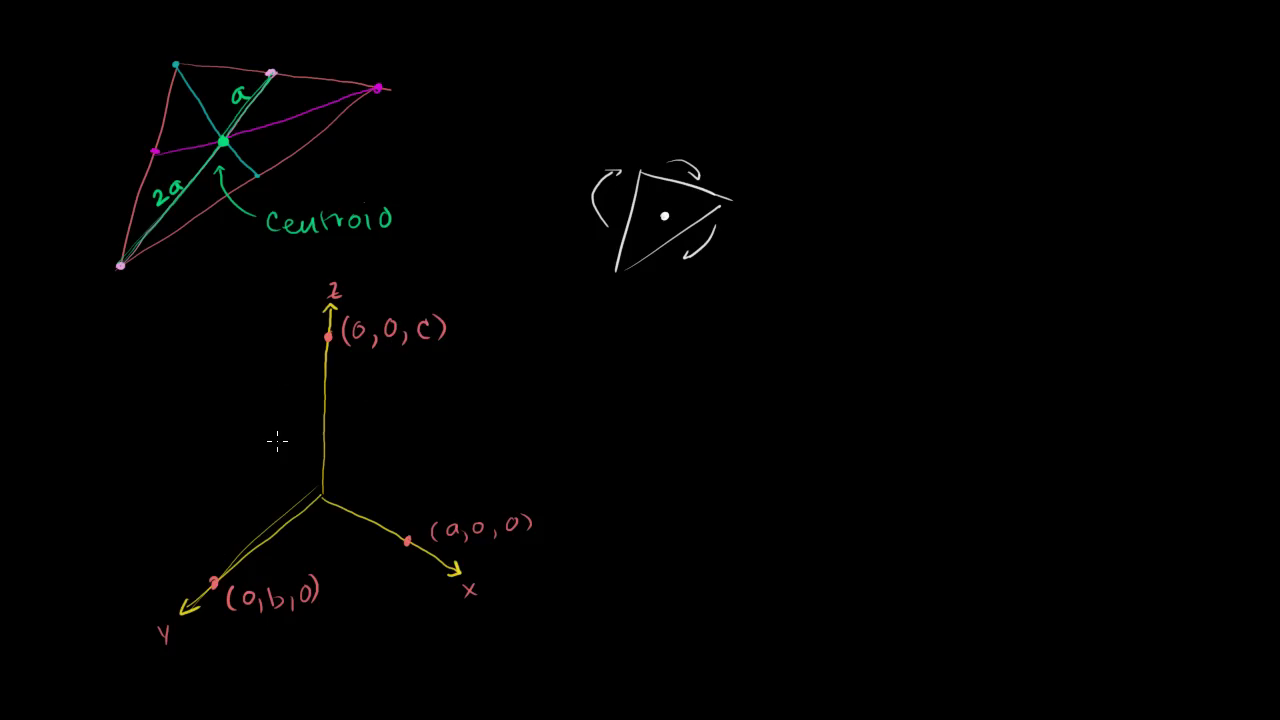 a
2a
Centroid
z
(0,0,c)
(a,0,0)
x
(0,b,0)
y